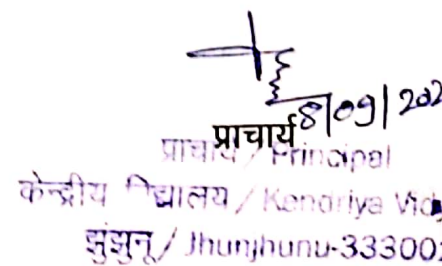 8/09/202
प्राचार्य
प्राचार्य / Principal
केन्द्रीय विद्यालय / Kendriya Vid
झुंझुनू / Jhunjhunu-33300